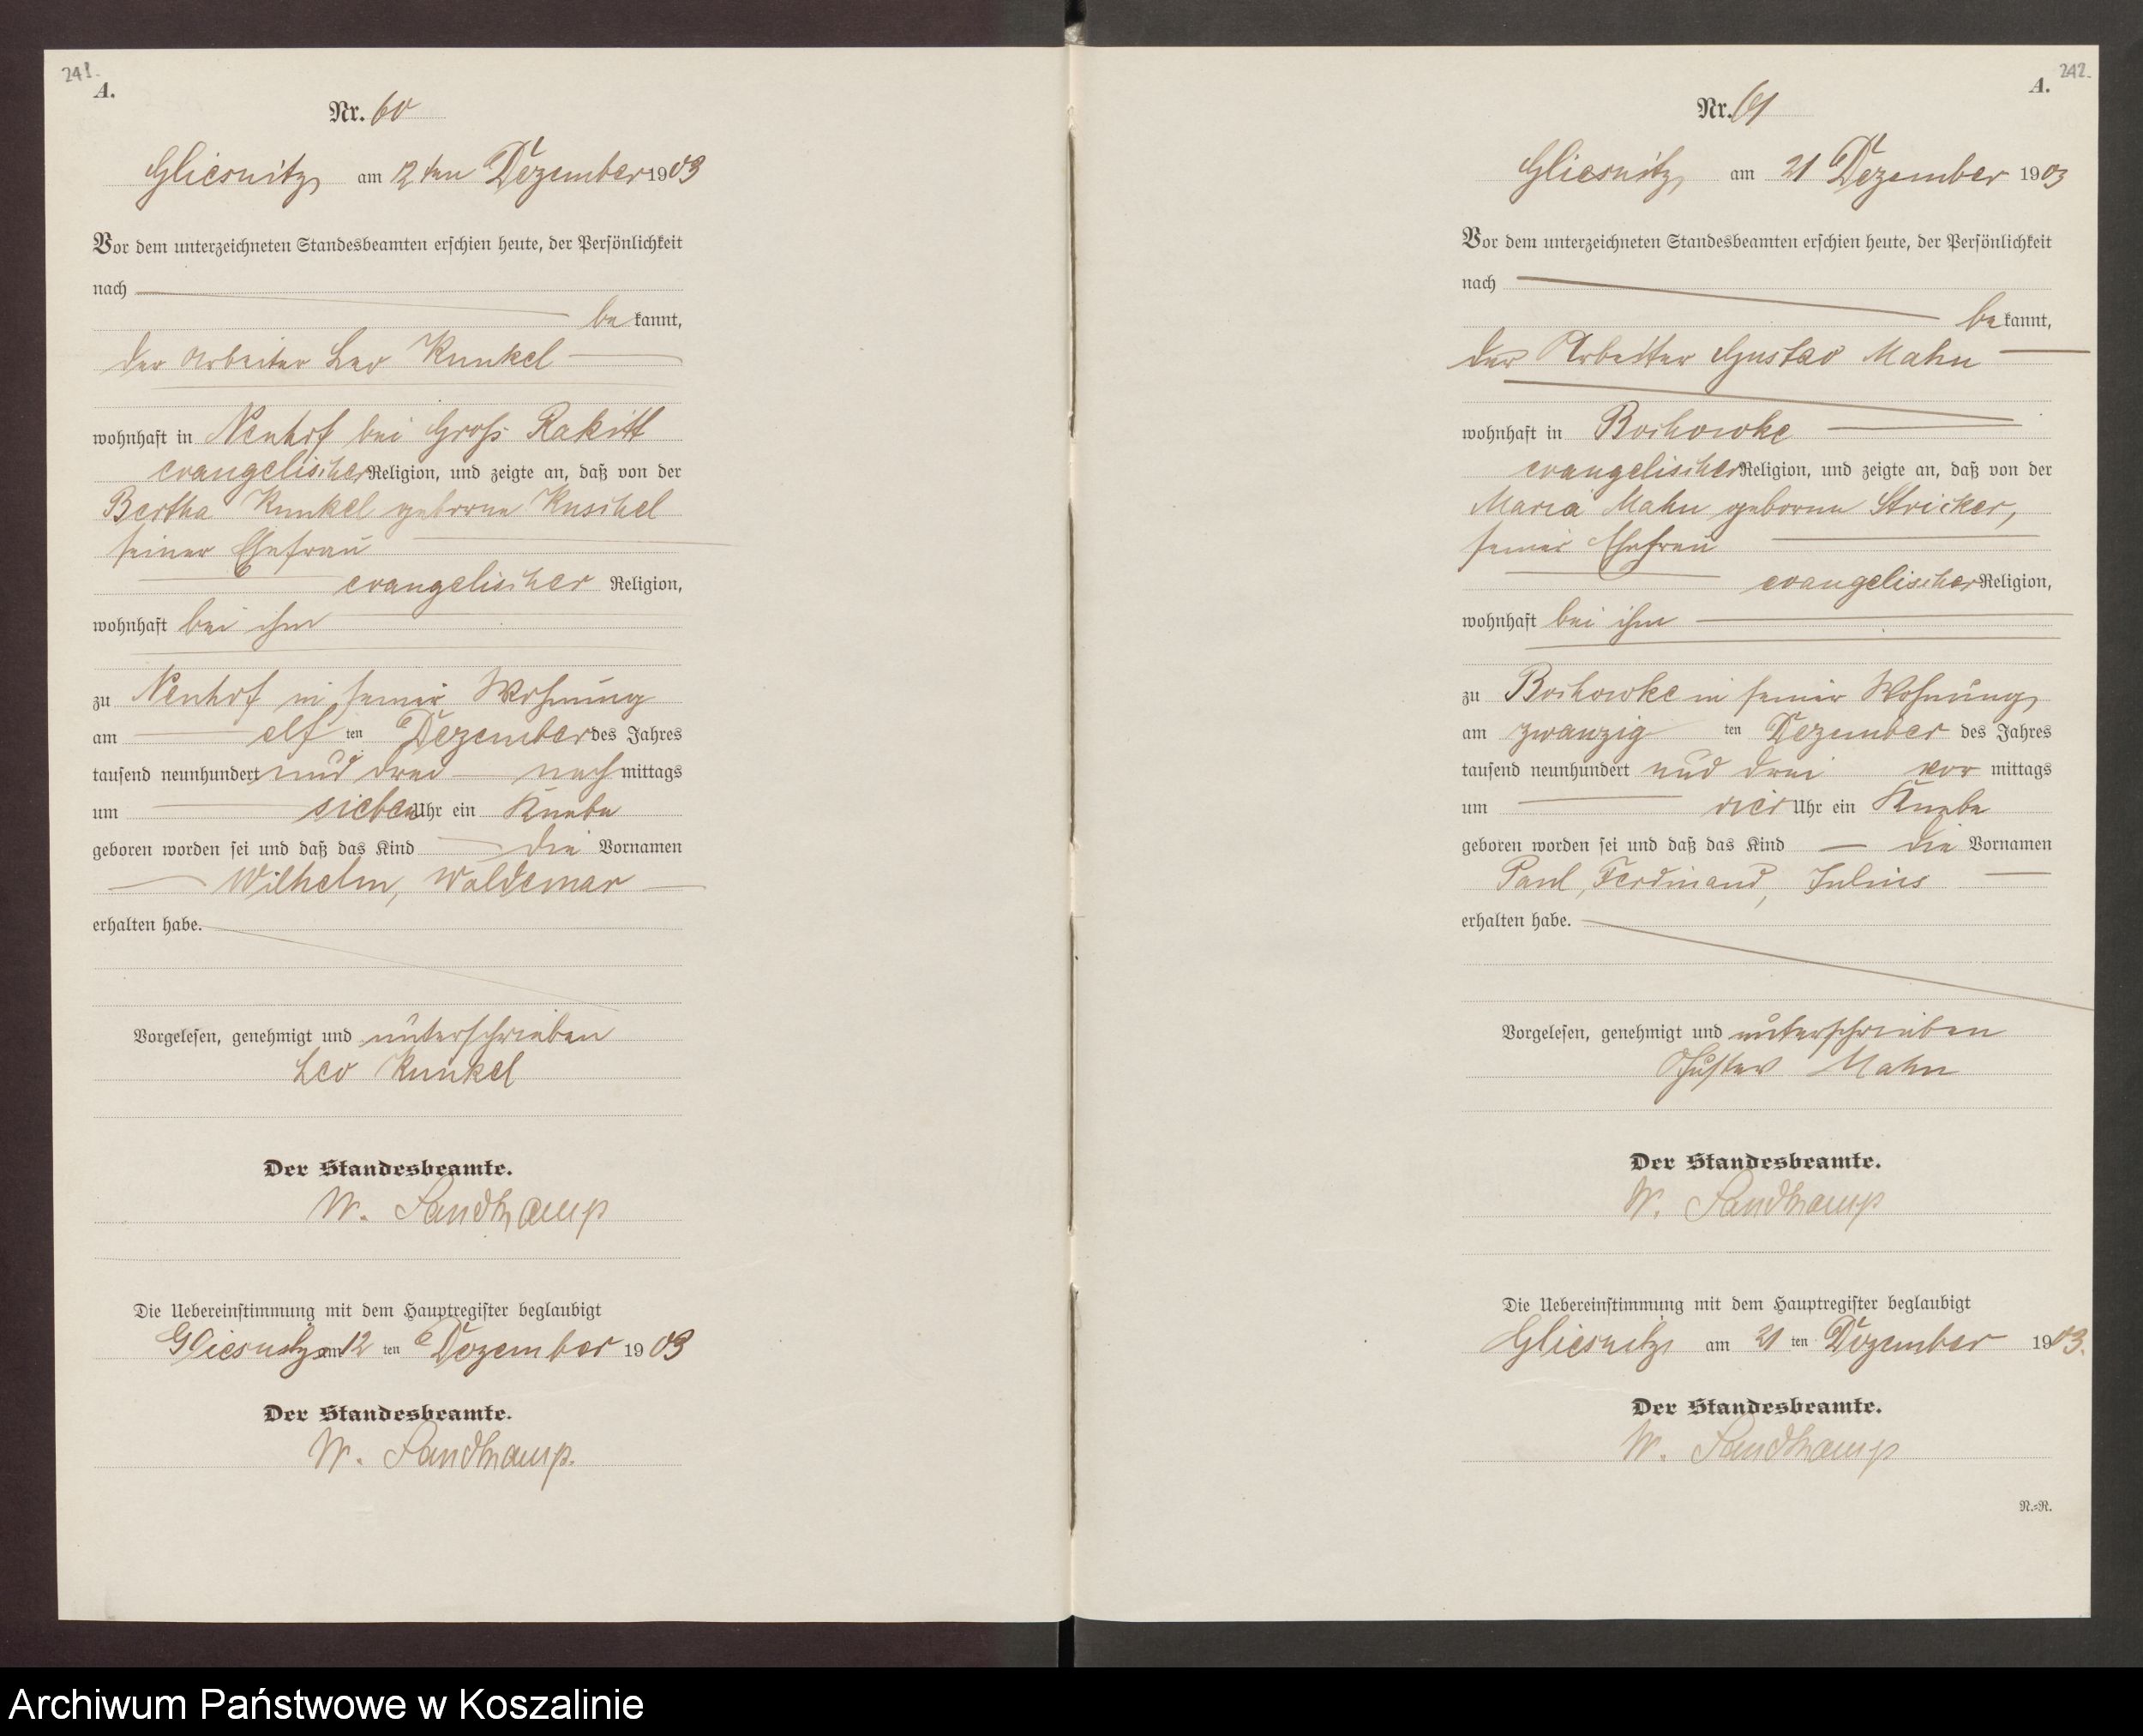 241.
A.
Nr. 60
Gliesnitz, am 12ten Dezember 1903
Vor dem unterzeichneten Standesbeamten erschien heute, der Persönlichkeit
nach
bekannt,
der Arbeiter Leo Kunkel
wohnhaft in Neuhof bei Groß Rakitt
evangelischer Religion, und zeigte an, daß von der
Bertha Kunkel geborne Kuschel
seiner Ehefrau
evangelischer Religion,
wohnhaft bei ihm
zu Neuhof in seiner Wohnung
am elf ten Dezember des Jahres
tausend neunhundert und drei nachmittags
um sieben Uhr ein Knabe
geboren worden sei und daß das Kind die Vornamen
Wilhelm, Waldemar
erhalten habe.
Vorgelesen, genehmigt und unterschrieben
Leo Kunkel
Der Standesbeamte.
W. Sandkamp
Die Uebereinstimmung mit dem Hauptregister beglaubigt
Gliesnitz am 12 ten Dezember 1903
Der Standesbeamte.
W. Sandkamp.
242.
A.
Nr. 61
Gliesnitz, am 21 Dezember 1903
Vor dem unterzeichneten Standesbeamten erschien heute, der Persönlichkeit
nach
bekannt,
der Arbeiter Gustav Mahn
wohnhaft in Bochowke
evangelischer Religion, und zeigte an, daß von der
Maria Mahn geborne Stricker,
seiner Ehefrau
evangelischer Religion,
wohnhaft bei ihm
zu Bochowke in seiner Wohnung,
am zwanzig ten Dezember des Jahres
tausend neunhundert und drei vor mittags
um vier Uhr ein Knabe
geboren worden sei und daß das Kind die Vornamen
Paul, Ferdinand, Julius
erhalten habe.
Vorgelesen, genehmigt und unterschrieben
Gustav Mahn
Der Standesbeamte.
W. Sandkamp
Die Uebereinstimmung mit dem Hauptregister beglaubigt
Gliesnitz am 21 ten Dezember 1903.
Der Standesbeamte.
W. Sandkamp
N.=R.
Archiwum Państwowe w Koszalinie